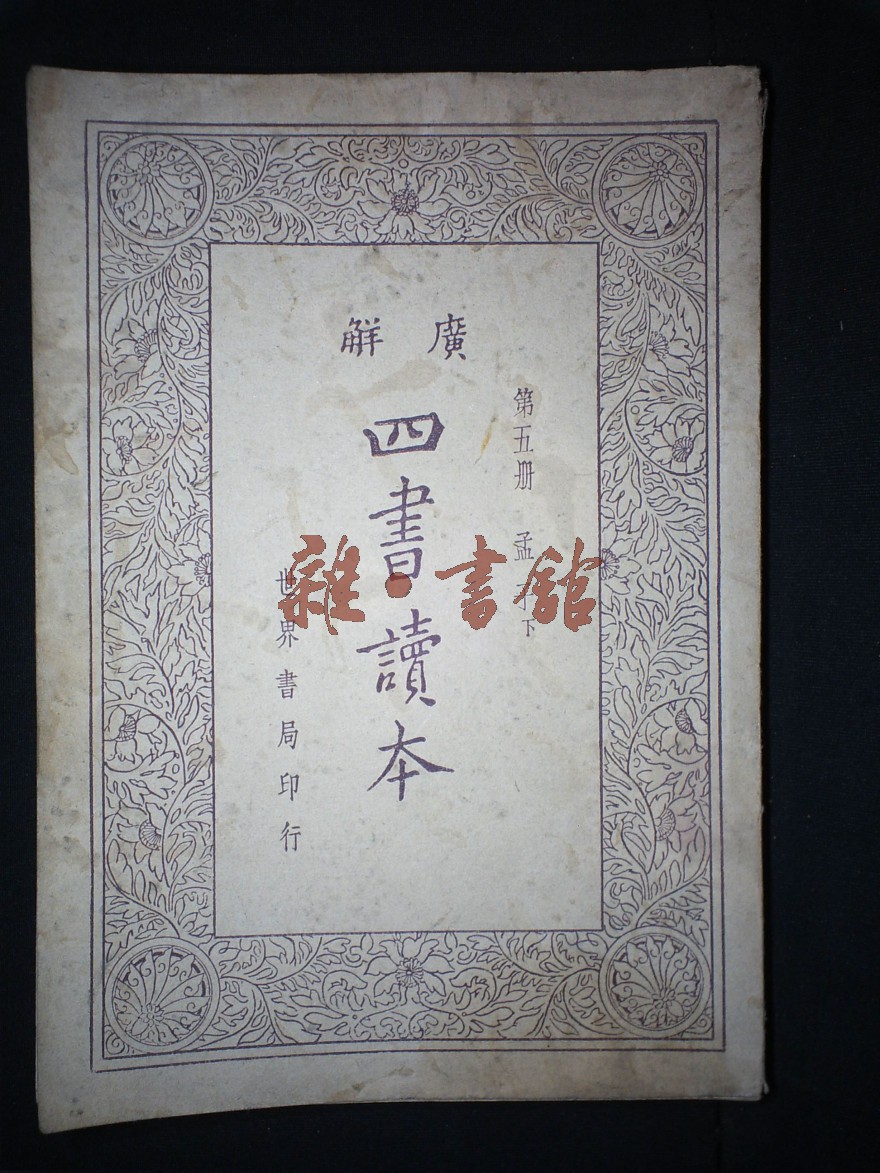 廣解
第五册 孟子下
四書讀本
世界書局印行
雜·書館